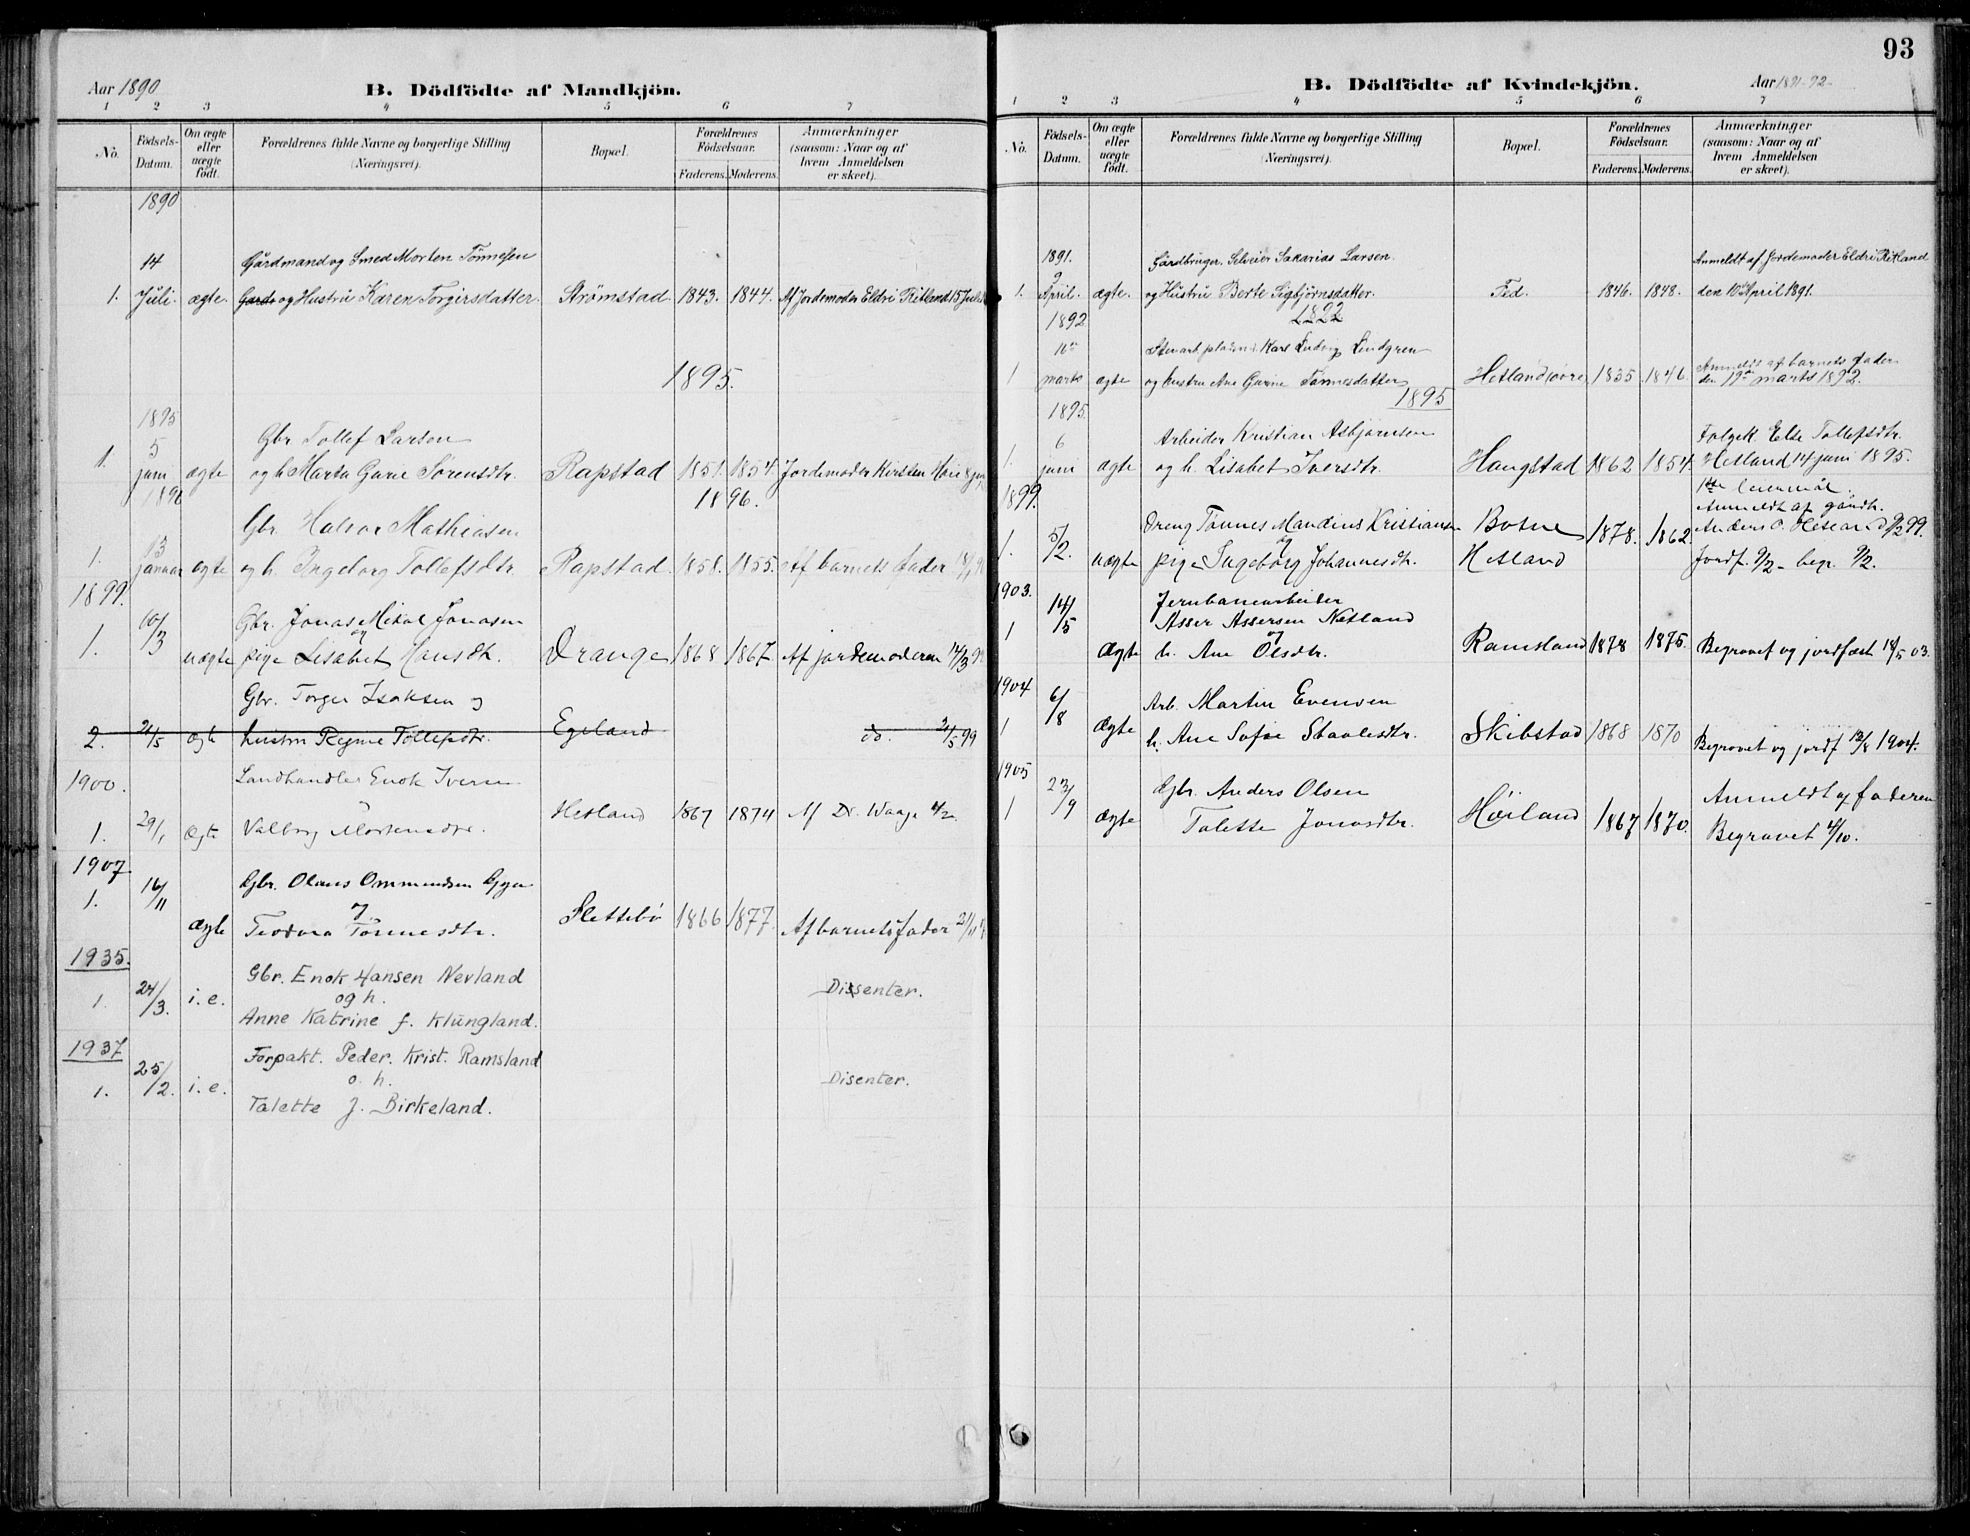 93
Aar 1890
B. Dödfödte af Mandkjön.
1 2 3 4 5 6 7
No.
Födsels-Datum.
Om ægte eller uægte födt.
Forældrenes fulde Navne og borgerlige Stilling (Næringsvei).
Bopæl.
Forældrenes Födselsaar.
Faderens. Moderens.
Anmærkninger (saasom: Naar og af hvem Anmeldelsen er skeet).
1890
14 Gårdmand og Smed Morten Tönnesen
1. Juli. ægte. og Hustru Karen Torgirsdatter. Strømstad. 1843. 1844. Af Jordemoder Eldri Ritland 15 Juli
1895.
1895
5 Gbr Tollef Larsen
1. juni ægte og h. Marta Garie Sørensdtr. Rapstad 1851. 1854. Jordemoder Kirsten
1896 1896.
Gbr. Halvor Mathiasen
1. 13 januar ægte og h. Ingeborg Tollefsdtr. Rapstad. 1858. 1855. Af barnets fader
1899.
10/3 Gbr. Jonas Mikal Jonasen
1. og
uægte pige Lisabet Hansdtr. Drange 1868 1867. Af jordemoderen 14/3 99
Gbr. Torger Isaksen og
2. 21/5 ægte hustru Regine Tollefsdtr. Egeland do. 21/5 99
1900. Landhandler Enok Iversen
1. 29/1 ægte Valborg Mortensdtr. Hetland 1867 1874 Af Dr. Waage 4/2
1907
1. 16/11 Gbr. Olaus Ommundsen Gya
ægte Teodora Tönnesdtr. Slettebø 1866 1877. Af barnets fader 21/11
1935.
Gbr. Enok Hansen Nevland
1. 24/3. i.e. og h. Dissenter.
Anne Katrine f. Klungland.
1937
Forpakt. Peder. Krist. Ramsland
1. 25/2. i.e. o. h. Disenter.
Talette J. Birkeland.
B. Dödfödte af Kvindekjön.
Aar 1891-92
1 2 3 4 5 6 7
No.
Födsels-Datum.
Om ægte eller uægte födt.
Forældrenes fulde Navne og borgerlige Stilling (Næringsvei).
Bopæl.
Forældrenes Födselsaar.
Faderens. Moderens.
Anmærkninger (saasom: Naar og af hvem Anmeldelsen er skeet).
1891.
9 Gårdbruger. Selveier Sakarias Larsen. Anmeldt af Jordemoder Eldri Ritland
1. April. ægte. og Hustru Berte Sigbjörnsdatter. Fed. 1846. 1848. den 10de April 1891.
1892 1892
Karl Ludvig Lindgren Anmeldt af barnets fader
1 marts ægte og hustru Ane Garine Tönnesdatter Hetland övre 1835 1846. den 19de marts 1892.
1895. 1895
6 Arbeider Kristian Asbjørnsen Else Tollefsdtr.
1. juni ægte og h. Lisabet Iversdtr. Haugstad 1862 1854. Hetland 14 juni 1895.
1899. 1ste leiermål.
Anmeldt af gårdbr.
Dreng Tönnes Mandius Kristiansen Bosne 1878. 1862. 9/2 99.
1. 5/2. og
uægte pige Ingeborg Johannesdtr. Hetland Jordf. 9/2 - begr. 9/2.
1903.
14/5 Jernbanearbeider
1 Asser Assersen Netland
og
ægte h. Ane Olsdtr. Ramsland 1878 1875. Begravet og jordfæst 18/5 03.
1904
6/8 Arb. Martin Evensen
1 ægte h. Ane Sofie Staalesdtr. Skibstad 1868 1870 Begravet og jordf 13/8 1904.
1905
23/9 Gbr. Anders Olsen Anmeldt af faderen
1 ægte Talette Jonasdtr. Höiland 1867 1870. Begravet 4/10.